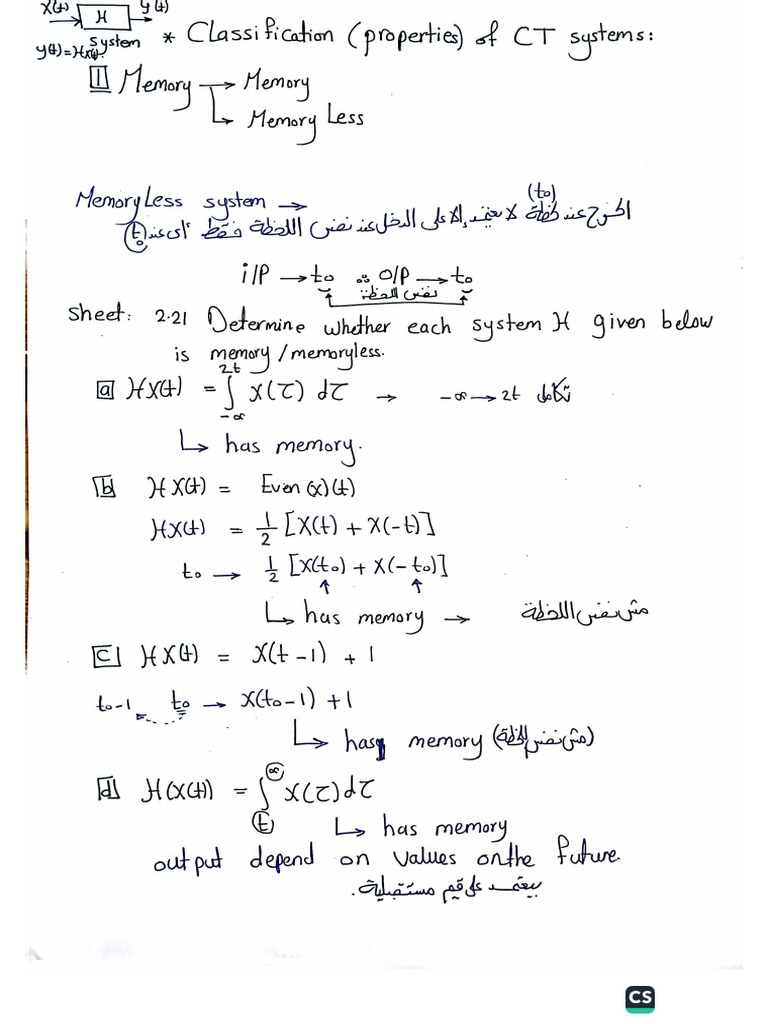 X(t) → H → y(t)
system
y(t)=Hx(t).
* Classification (properties) of CT systems:
1 Memory → Memory
↳ Memory Less
MemoryLess system →
الخرج عند لحظة (to) لا يعتمد إلا على الدخل عند نفس اللحظة فقط أي عند (to)
i/P → to ∴ O/P → to
نفس اللحظة
Sheet: 2.21 Determine whether each system H given below
is memory/memoryless.
a HX(t) = ∫_{-∞}^{2t} X(τ) dτ → -∞ → 2t تكامل
↳ has memory.
b HX(t) = Even(x)(t)
HX(t) = 1/2 [X(t) + X(-t)]
to → 1/2 [X(to) + X(-to)]
↳ has memory → مش نفس اللحظة
c HX(t) = X(t-1) + 1
to-1 to → X(to-1) +1
↳ has memory (مش نفس اللحظة)
d H(X(t)) = ∫_{t}^{∞} X(τ) dτ
↳ has memory
output depend on values on the future.
بيعتمد على قيم مستقبلية.
CS